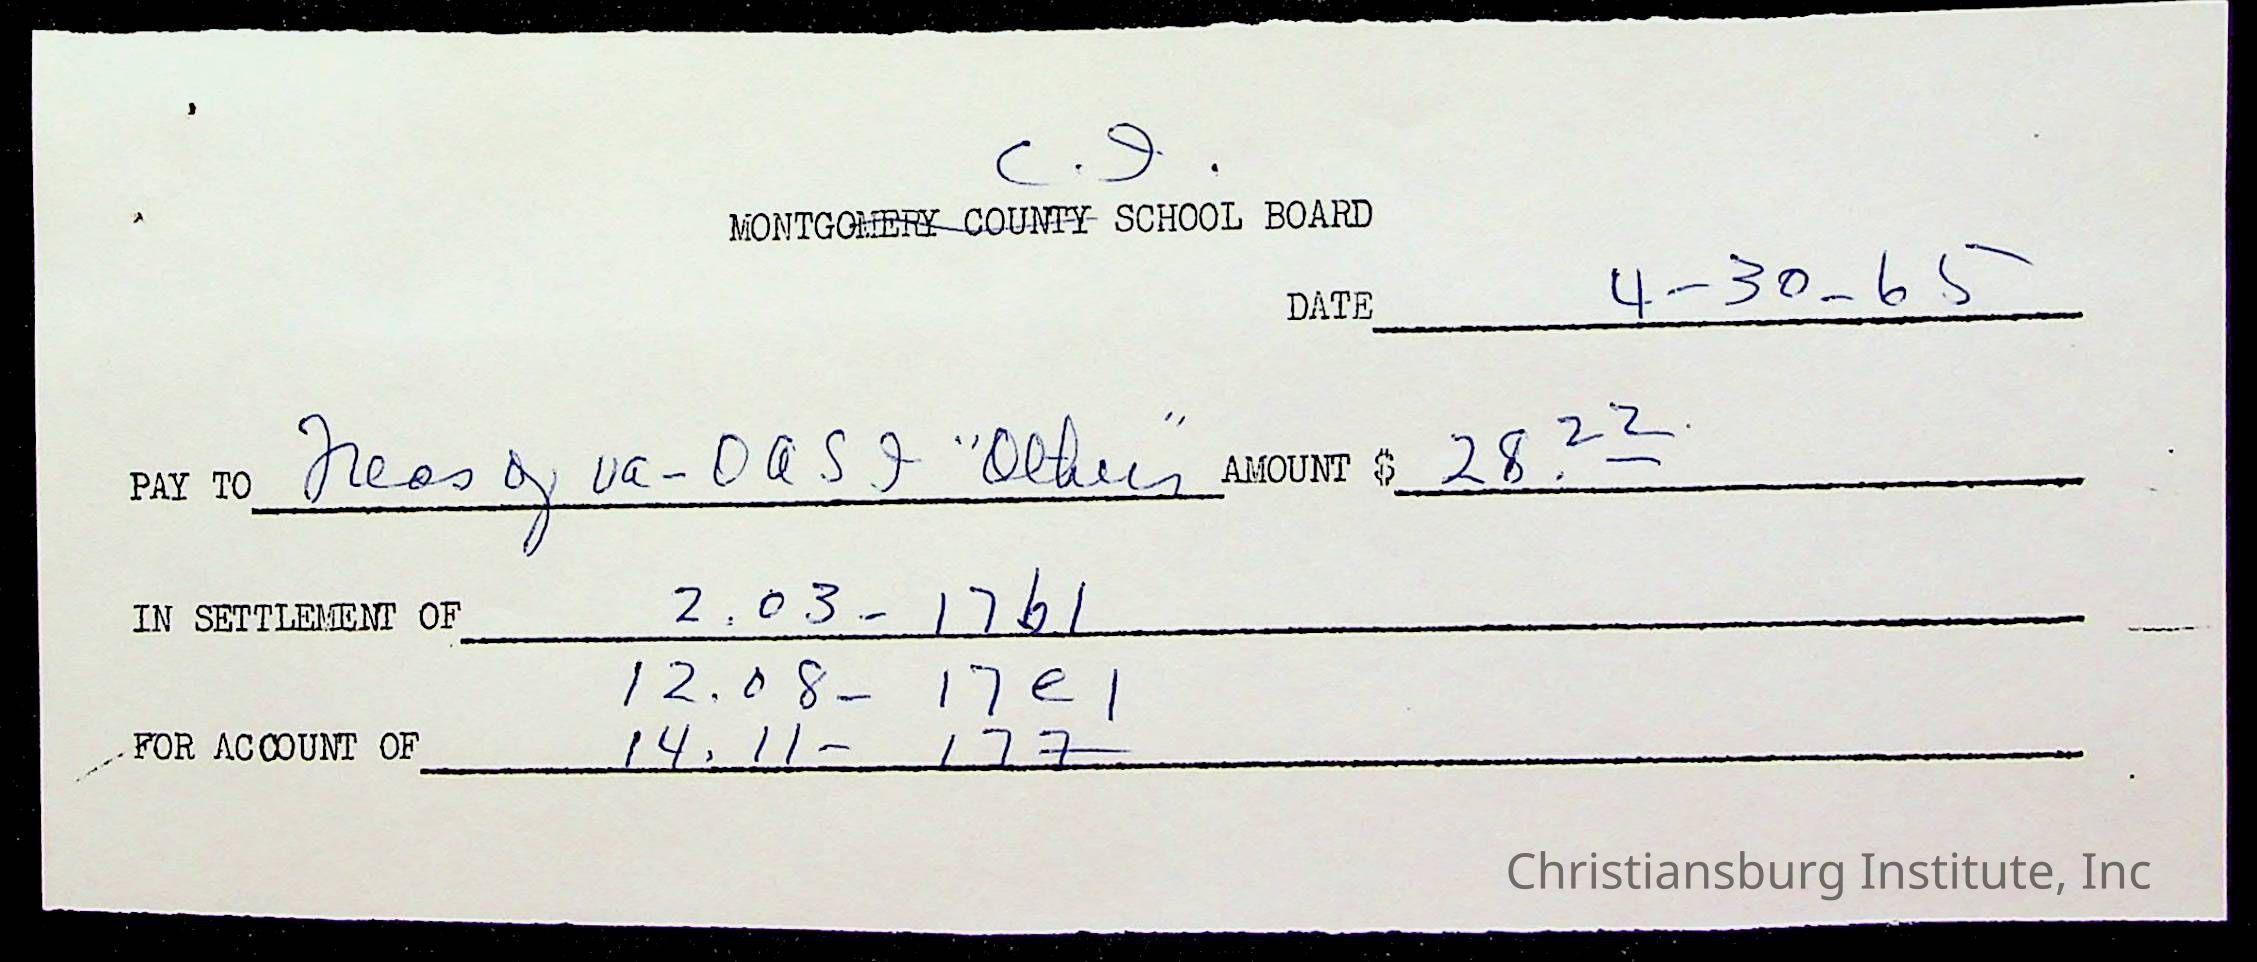 C. I.
MONTGOMERY COUNTY SCHOOL BOARD
DATE 4-30-65
PAY TO Treas of Va - OASI "Others" AMOUNT $ 28.22
IN SETTLEMENT OF 2.03 - 17b1
12.08 - 17e1
FOR ACCOUNT OF 14.11 - 177
Christiansburg Institute, Inc